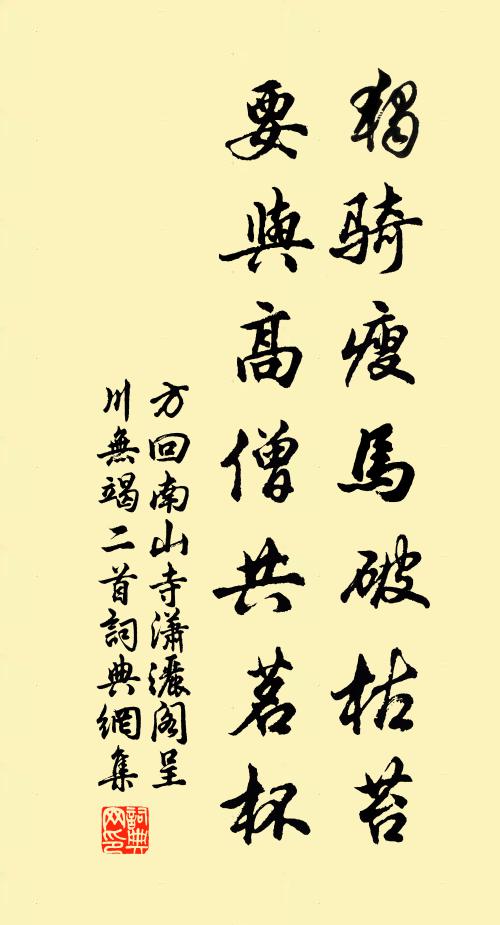 獨騎瘦馬破枯苔
要與高僧共茗杯
方回南山寺瀟灑閣呈
川無竭二首詞典網集
詞典網印